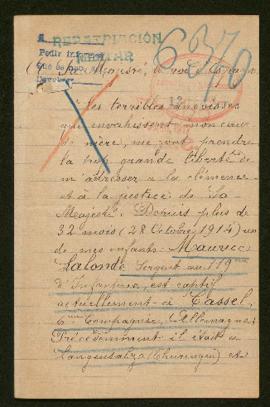 REPATRIACIÓN
MILITAR
6370
A Sa Majesté, le roi d'Espagne
Les terribles angoisses
qui envahissent mon cœur
de mère, me font prendre
la très grande liberté de
m'adresser à la clémence
et à la justice de Sa
Majesté. Depuis plus de
32 mois (28 Octobre 1914) un
de mes enfants Maurice
Lalonde Sergent au 119me
d'Infanterie, est captif
actuellement à Cassel,
6me Compagnie, Allemagne.
Précédemment il était à
Langensalza (Thuringe) et